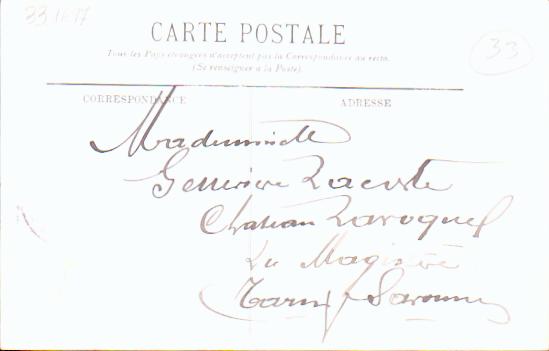 CARTE POSTALE
Tous les Pays étrangers n'acceptent pas la Correspondance au recto.
(Se renseigner à la Poste).
CORRESPONDANCE
ADRESSE
33
Mademoiselle
Geneviève Lacoste
Chateau Laroque
La Magistère
Tarn & Garonne